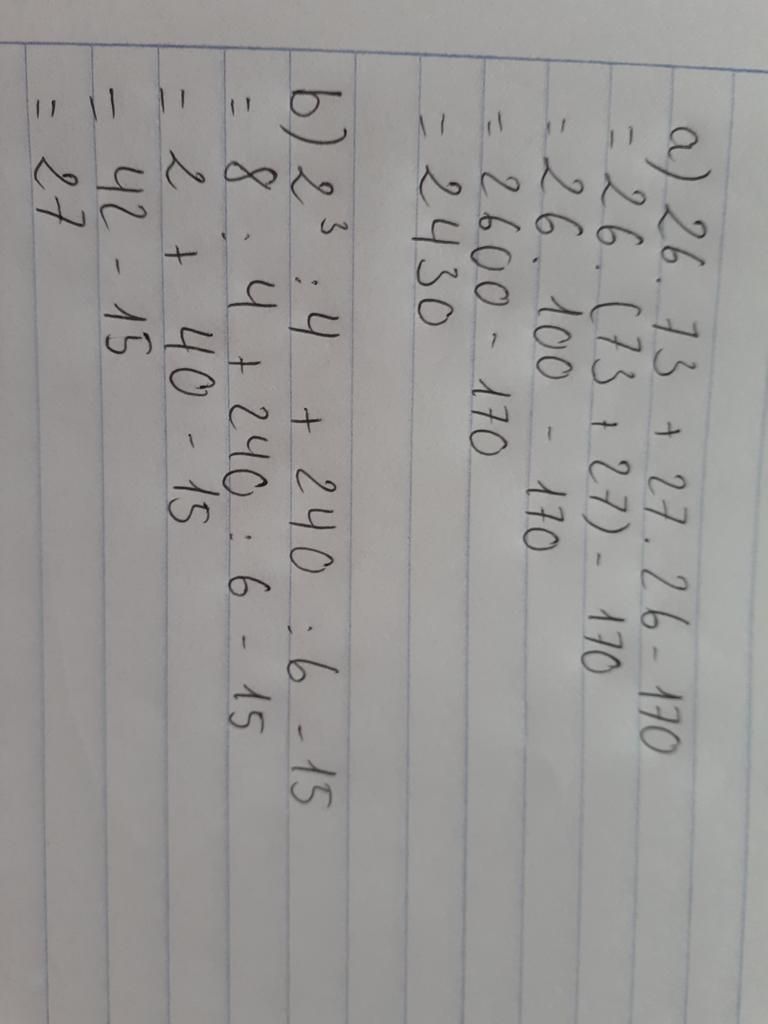 a) 26 . 73 + 27 . 26 - 170
= 26 . (73 + 27) - 170
= 26 . 100 - 170
= 2600 - 170
= 2430
b) 2³ : 4 + 240 : 6 - 15
= 8 : 4 + 240 : 6 - 15
= 2 + 40 - 15
= 42 - 15
= 27